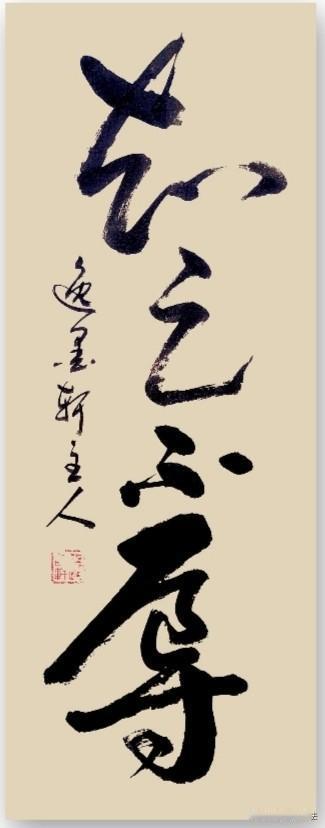 知足不辱
逸墨轩主人